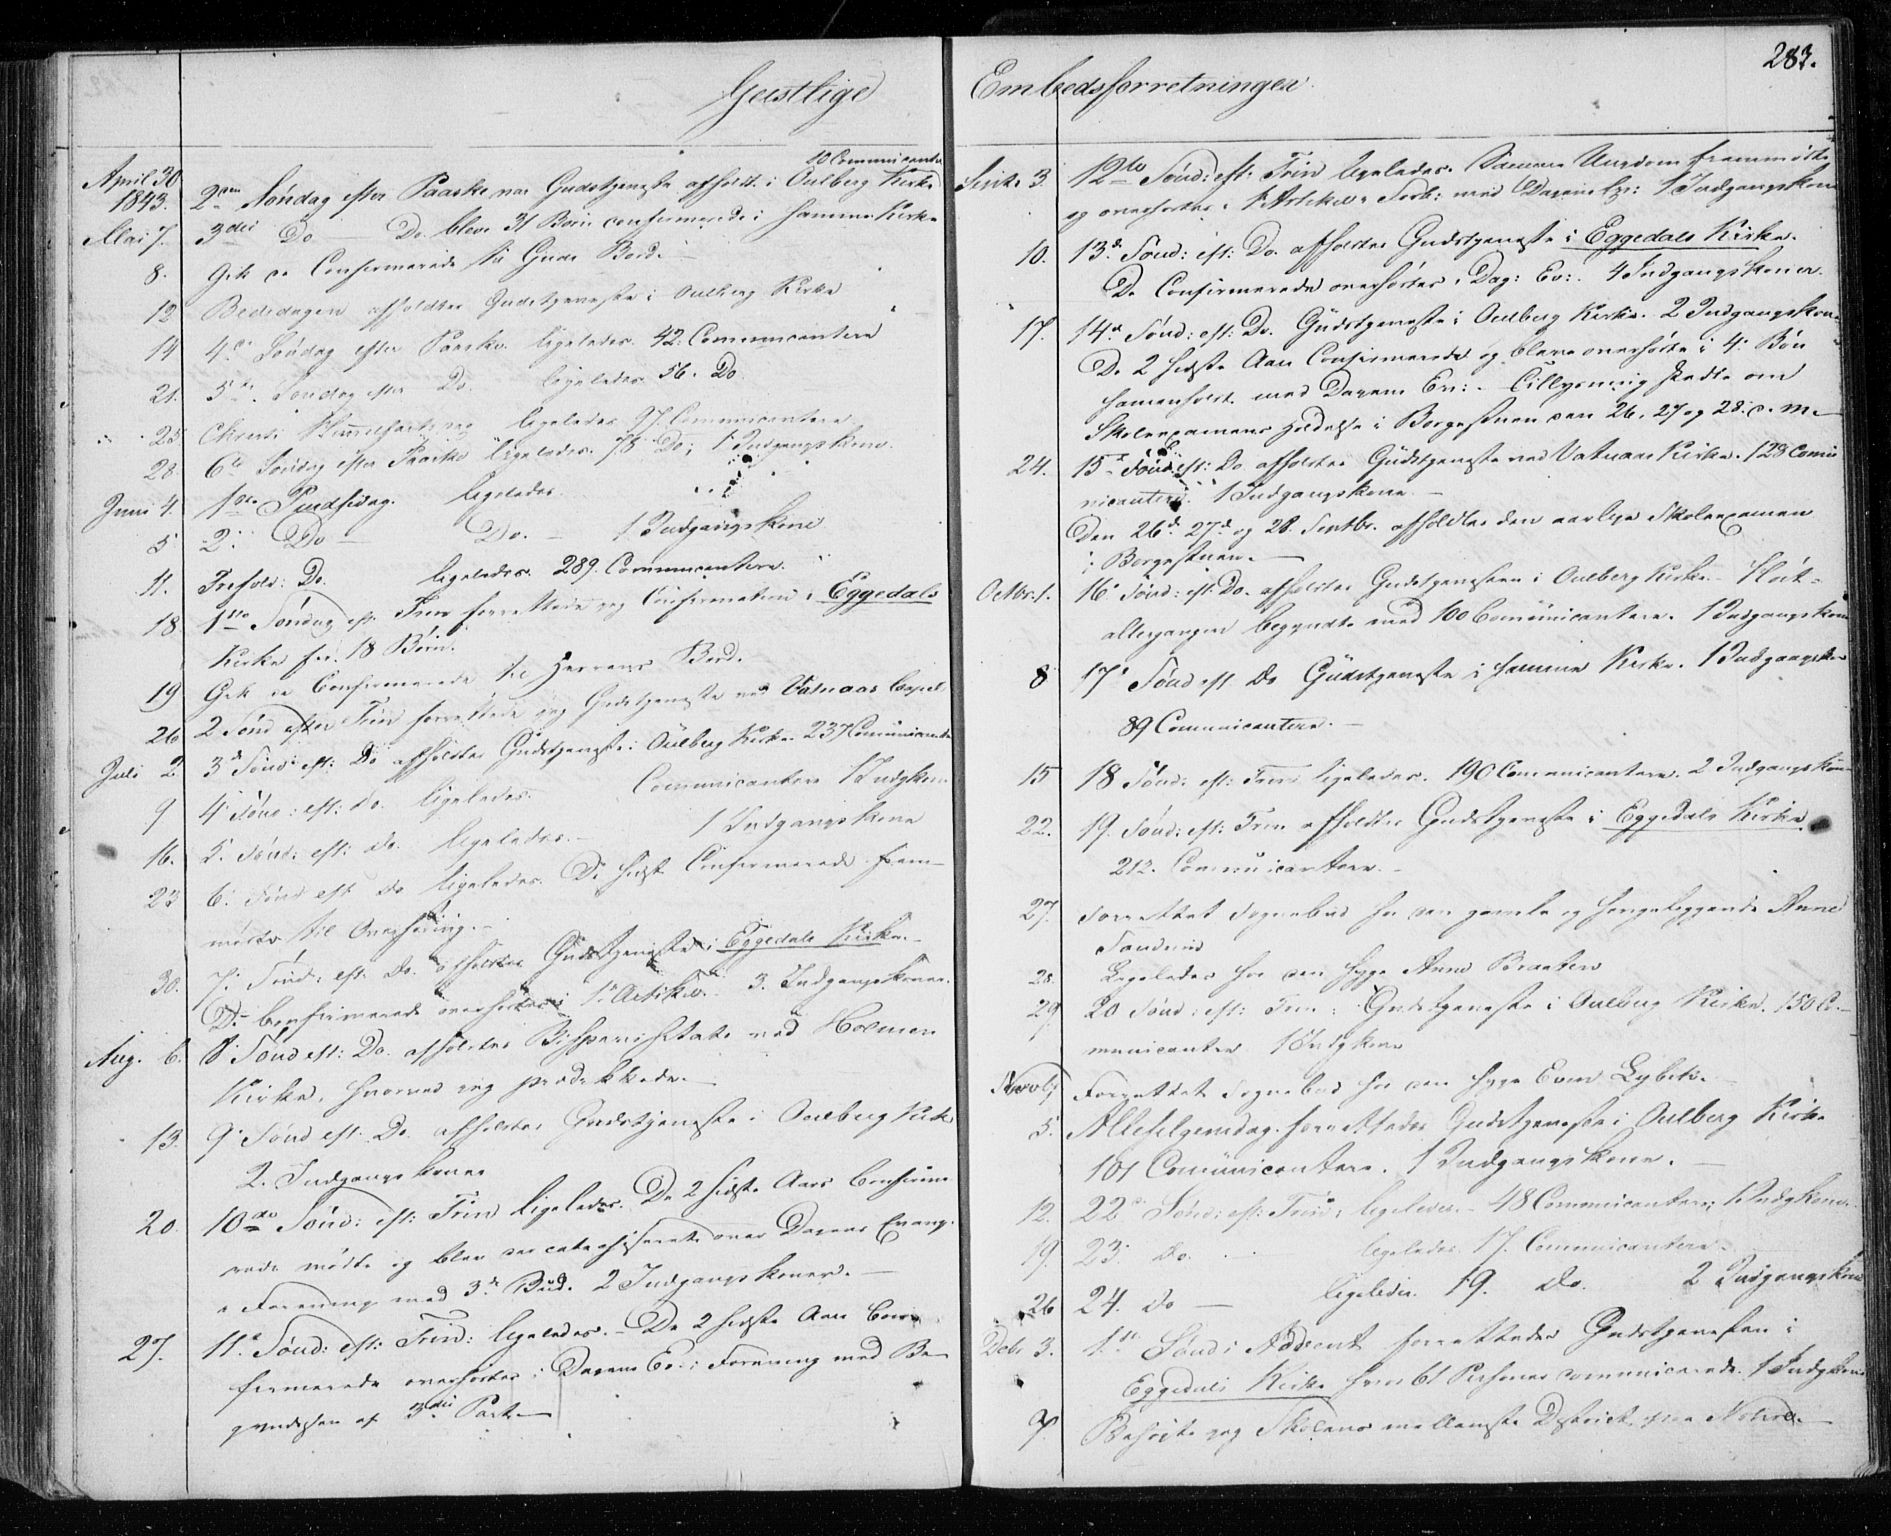 Geistlige
April 30 1843. 2den Søndag efter Paaske var Gudstjeneste afholdt i Oulberg Kirke 10 Communicantere
Mai 7. 3die Do Do bleve 31 Børn confirmerede i samme Kirke
8. Gik de Confirmerede til Guds Bord.
12 Bededagen afholdtes Gudstjeneste i Oulberg Kirke
14 4de Søndag efter Paaske ligeledes. 42. Communicantere
21. 5te Søndag efter Do. ligeledes 56. Do
25 Christi Himmelfartsdag ligeledes 97. Communicantere
28. 6te Søndag efter Paaske ligeledes. 78 Do; 1 Indgangskone.
Juni 4. 1ste Pindsedag. ligeledes.
5 2. Do Do. 1 Indgangskone
11. Trefold: Do. ligeledes. 289. Communicantere.
18 1ste Søndag eft. Trin forrettede jeg Confirmation i Eggedals
Kirke for 18 Børn.
19 Gik de Confirmerede til Herrens Bord.
26 2 Sønd efter Trin forrettede jeg Gudstjeneste ved Vatnaas Capel
Juli 2 3d Sønd: eft: Do afholdtes Gudstjeneste i Oulberg Kirke 237 Comunicantere
9 4 Sønd: eft: do. ligeledes. Communicantere 1 Indgkone
16. 5. Sønd: eft: do. ligeledes. 1 Indgangskone
23 6. Sønd eft do ligeledes. De sidst Confirmerede frem-
mødte til Overhøring.
30. 7. Sønd: eft. do. afholdtes Gudstjeneste i Eggedals Kirke.
De Confirmerede overhørtes i 1ste Artikel. 3. Indgangskoner.
Aug. 6. 8 Sønd eft: Do. afholdtes Bispevisitats ved Holmen
Kirke, hvorved jeg prædikkede.
13. 9. Sønd eft. Do. afholdtes Gudstjeneste i Oulberg Kirke
2. Indgangskoner
20. 10de Sønd: eft: Trin ligeledes. De 2 sidste Aars Confirme-
rede mødte og blev catechiserede over Dagens Evang.
i Forening med 3de Bud. 2 Indgangskoner.
27. 11te Sønd: eft: Trin: ligeledes. De 2 sidste Aars Con-
firmerede overhørtes i Dagens Ev: i Forening med Be-
gyndelsen af 3die Part.
Embedsforretninger
283.
3. 12te Sønd: eft: Trin ligeledes. Samme Ungdom fremmødte
og overhørtes i 1ste Artikel i Forb: med Dagens Ev: 1 Indgangskone
10. 13d. Sønd: eft: Do. afholdtes Gudstjeneste i Eggedals Kirke.
De Confirmerede overhørtes i Dag: Ev: 4 Indgangskoner.
17. 14de Sønd: eft: Do. Gudstjeneste i Oulberg Kirke. 2 Indgangskoner
De 2 sidste Aars Confirmerede og bleve overhørte i 4. Bøn
samenholdt med Dagens Ev: Tillysning skedte om
Skoleexamens Holdelse i Borgestuen den 26. 27 og 28. d. M.
24. 15de Sønd: eft: Do afholdtes Gudstjeneste ved Vatnaas Kirke. 128 Comu-
nicantere. 1 Indgangskone.
Den 26d. 27d. og 28. Septbr. afholdtes den aarlige Skoleexamen
i Borgestuen.
Octbr. 1. 16de Sønd: eft: Do. afholdtes Gudstjenesten i Oulberg Kirke. Høst-
altergangen begyndte med 100 Comunicantere. 1 Indgangskone
8 17de Sønd eft Do Gudstjeneste i samme Kirke. 1 Indgangskone
89 Communicantere.
15 18 Sønd: eft: Trin ligeledes. 190 Communicantere. 2 Indgangskoner
22. 19. Sønd: eft: Trin. afholdtes Gudstjeneste i Eggedals Kirke
212. Communicantere.
27. Forrettet Sognebud hos den gamle og sengeliggende Anne
28. Ligeledes hos den syge Anne Braaten
29 20 Sønd: eft: Trin: Gudstjeneste i Oulberg Kirke. 150 Co-
municantere 1 Indgkone
Novbr Forrettet Sognebud hos den syge Even
5. Allehelgensdag. forrettedes Gudstjeneste i Oulberg Kirke
101 Comunicantere. 1 Indgangskone.
12. 22de Sønd: eft: Trin: ligeledes. 48 Communicantere; 1 Indgkone.
19. 23. do. ligeledes 17. Communicantere.
26 24. do ligeledes. 19. do. 2 Indgangskoner
Decbr 3. 1ste Sønd i Advent forrettedes Gudstjenesten i
Eggedals Kirke hvor 61 Personer communicerede. 1 Indgkone
7. Besøgte jeg Skolens mellemste District paa